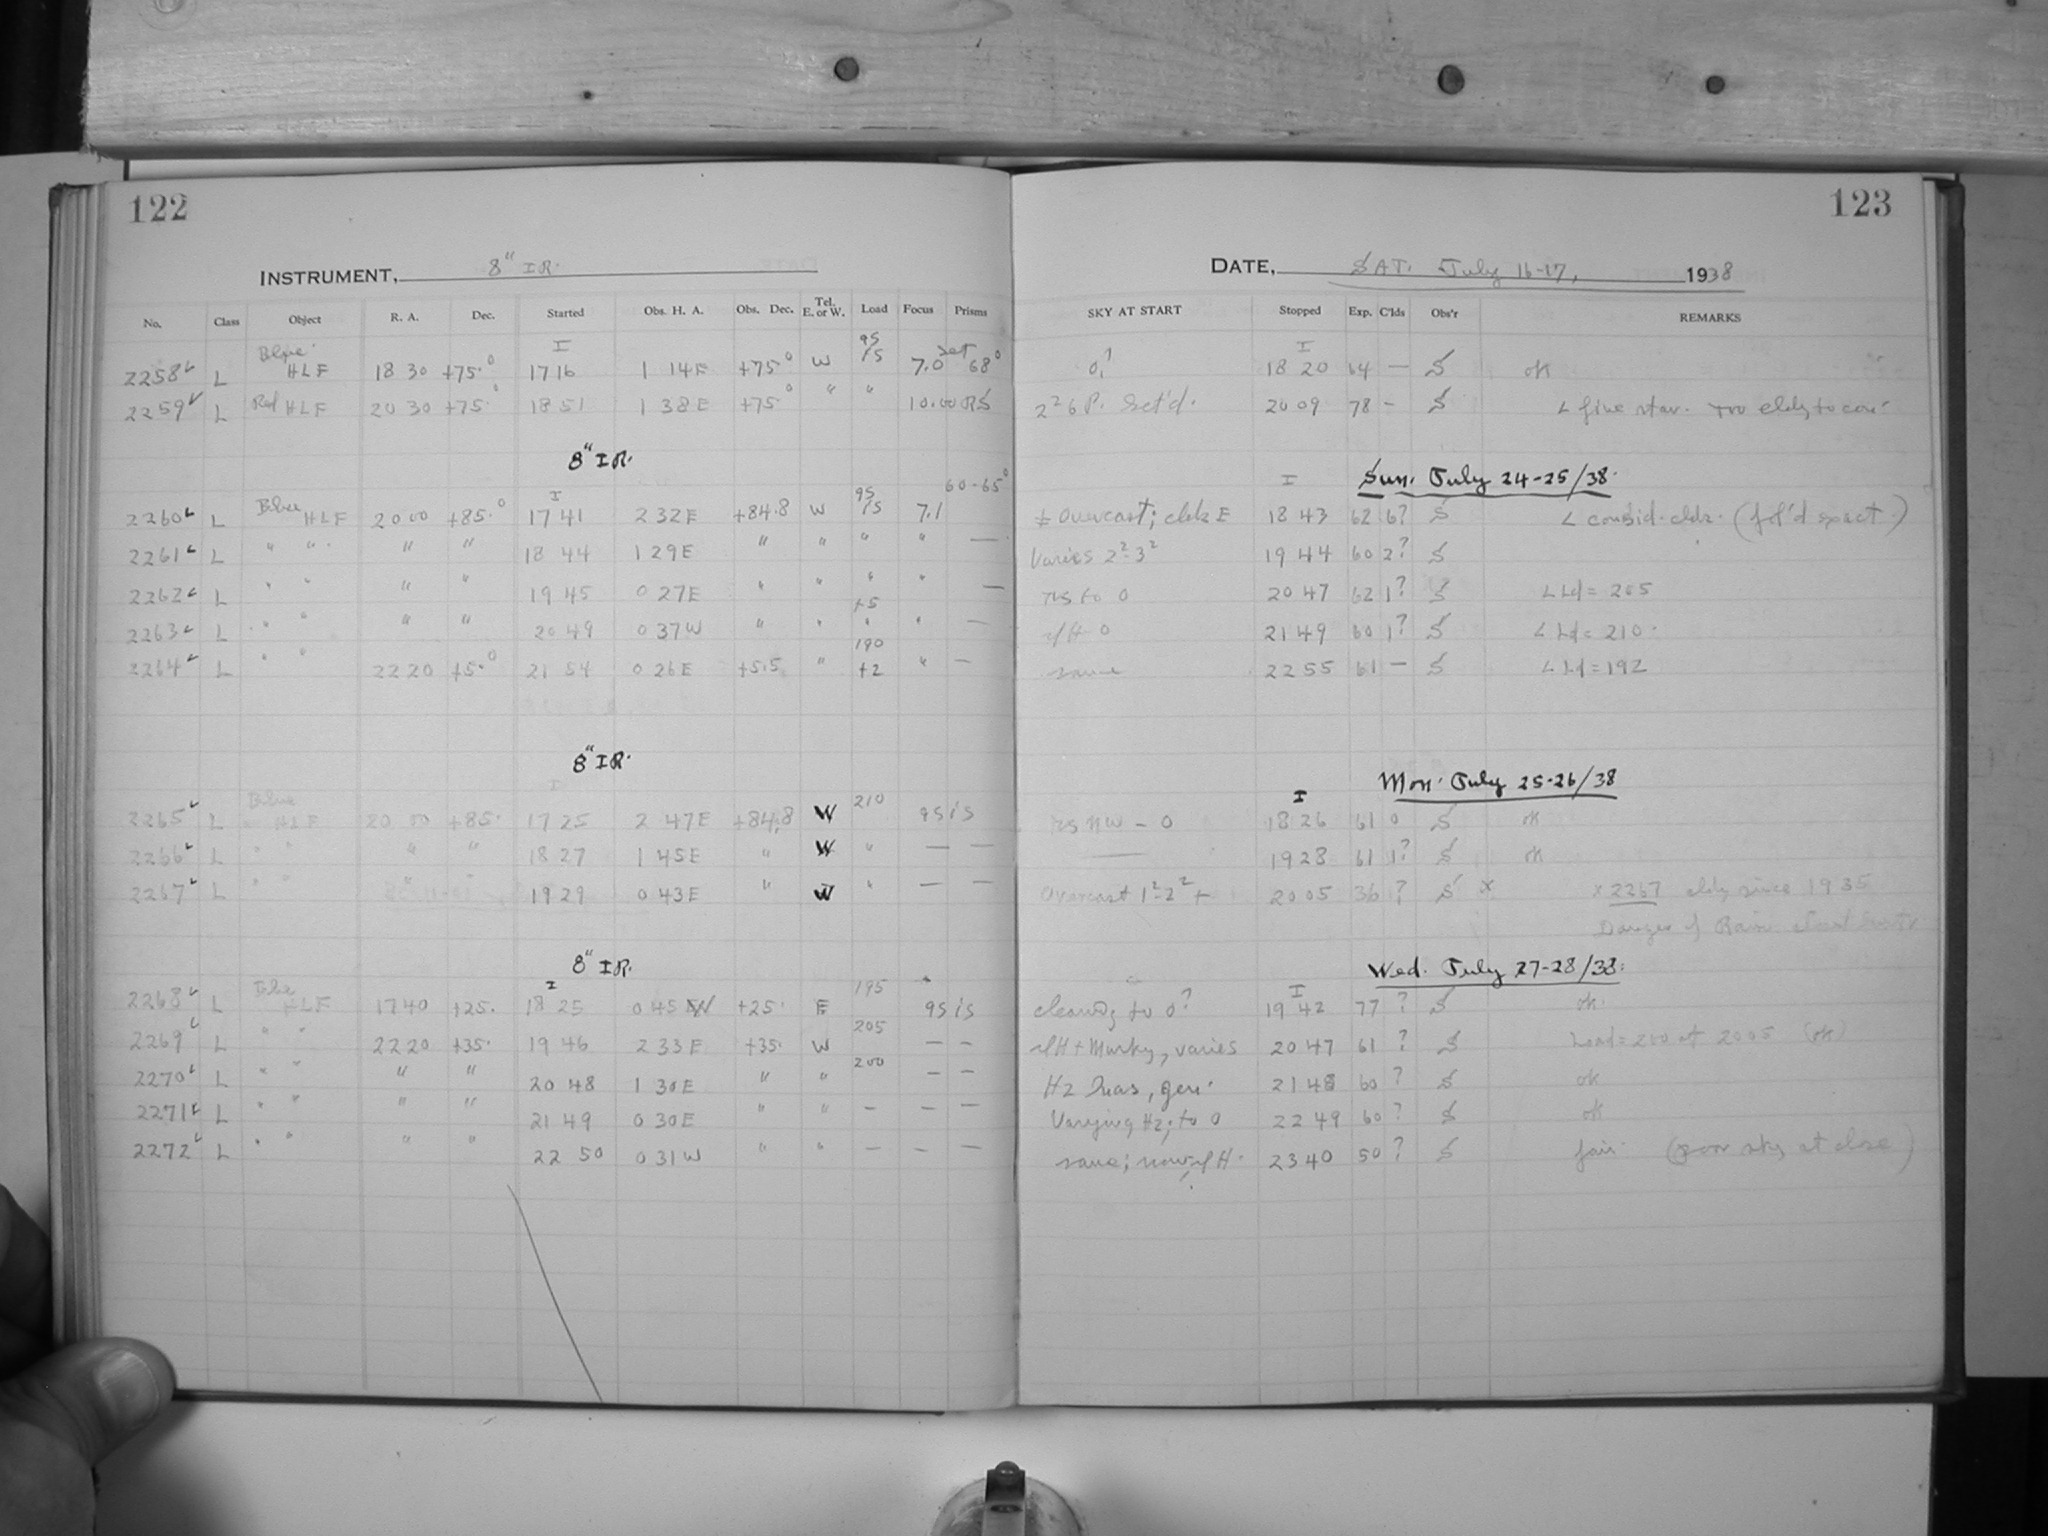 122
INSTRUMENT, 8" I R.
No. Class Object R. A. Dec. Started Obs. H. A. Obs. Dec. Tel. E. or W. Load Focus Prisms
2258 L Blue HLF 18 30 +75.° I 17 16 1 14E +75° W 95 15 7.0 set 68°
2259 L Red HLF 20 30 +75.° 18 51 1 38E +75.° " " 10.00 RS
8" I R.
60-65°
2260 L Blue HLF 20 00 +85.° I 17 41 2 32E +84.8 W 95 15 7.1
2261 L " " " " 18 44 1 29E " " " " —
2262 L " " " " 19 45 0 27E " " " " —
2263 L " " " " 20 49 0 37W " " +5 " " —
2264 L " " 22 20 +5.° 21 54 0 26E +5.5 " 190 +2 " —
8" I R.
2265 L Blue HLF 20 00 +85. 17 25 2 47E +84.8 W 210 as is
2266 L " " " " 18 27 1 45E " W " — —
2267 L " " " 19 29 0 43E " W " — —
8" I R.
2268 L Blue HLF 17 40 +25. I 18 25 0 45 W +25. E 195 as is
2269 L " " 22 20 +35. 19 46 2 33E +35. W 205 — —
2270 L " " " " 20 48 1 30E " " 200 — —
2271 L " " " " 21 49 0 30E " " — — —
2272 L " " " " 22 50 0 31W " " — — —
123
DATE, SAT. July 16-17, 1938
SKY AT START Stopped Exp. C'lds Obs'r REMARKS
0? I 18 20 64 — S ok
2² 6 P. Sct'd. 20 09 78 - S L five star. Too cldy to con.
I Sun. July 24-25/38.
± Overcast; clds E 18 43 62 6? S L consid. clds.
Varies 2²-3² 19 44 60 2? S
to 0 20 47 62 1? S L Ld = 205
0 21 49 60 1? S L Ld = 210.
same 22 55 61 — S L Ld = 192
I Mon. July 25-26/38
NW — 0 18 26 61 0 S ok
—— 19 28 61 1? S ok
Overcast 1²-2² + 20 05 36 ? S x x 2267 cldy since 1935
Danger of Rain
Wed. July 27-28/38.
clearing to 0? I 19 42 77 ? S ok.
+ Murky, varies 20 47 61 ? S Load = 200 at 2005 (ok)
Hz 21 48 60 ? S ok
Varying Hz; to 0 22 49 60 ? S ok
same; now H. 23 40 50 ? S fair. (poor sky at close)